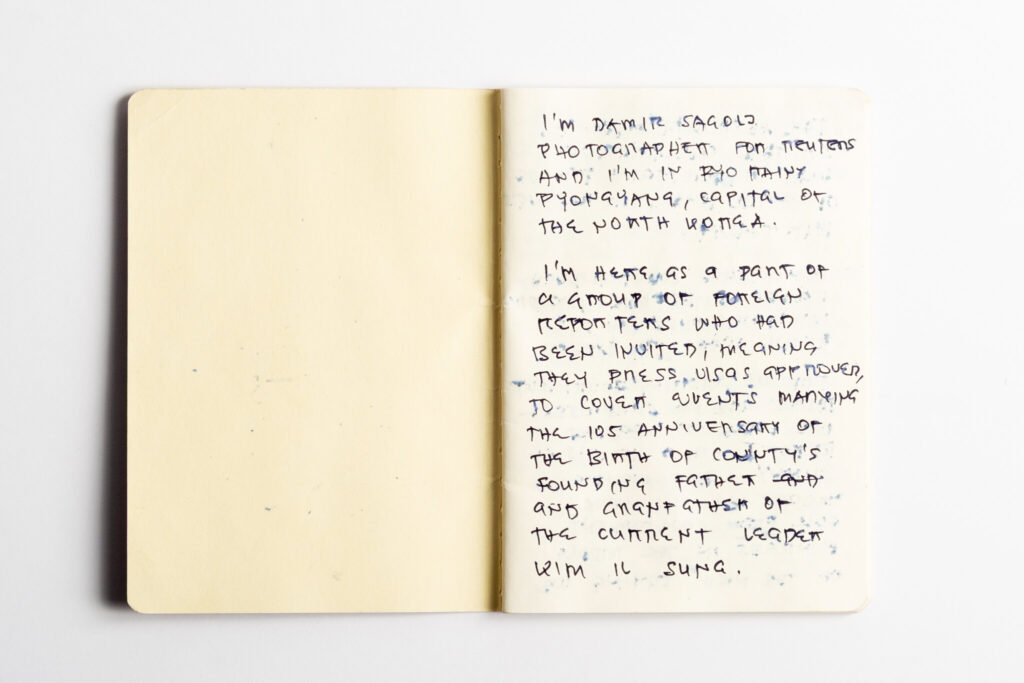 I'M DAMIR SAGOLJ
PHOTOGRAPHER FOR REUTERS
AND I'M IN
PYONGYANG, CAPITAL OF
THE NORTH KOREA.
I'M HERE AS A PART OF
A GROUP OF FOREIGN
REPORTERS WHO HAD
BEEN INVITED, MEANING
THEY PRESS VISAS APPROVED,
TO COVER EVENTS MARKING
THE 105 ANNIVERSARY OF
THE BIRTH OF CONNTY'S
FOUNDING FATHER AND
AND GRANFATHER OF
THE CURRENT LEADER
KIM IL SUNG.